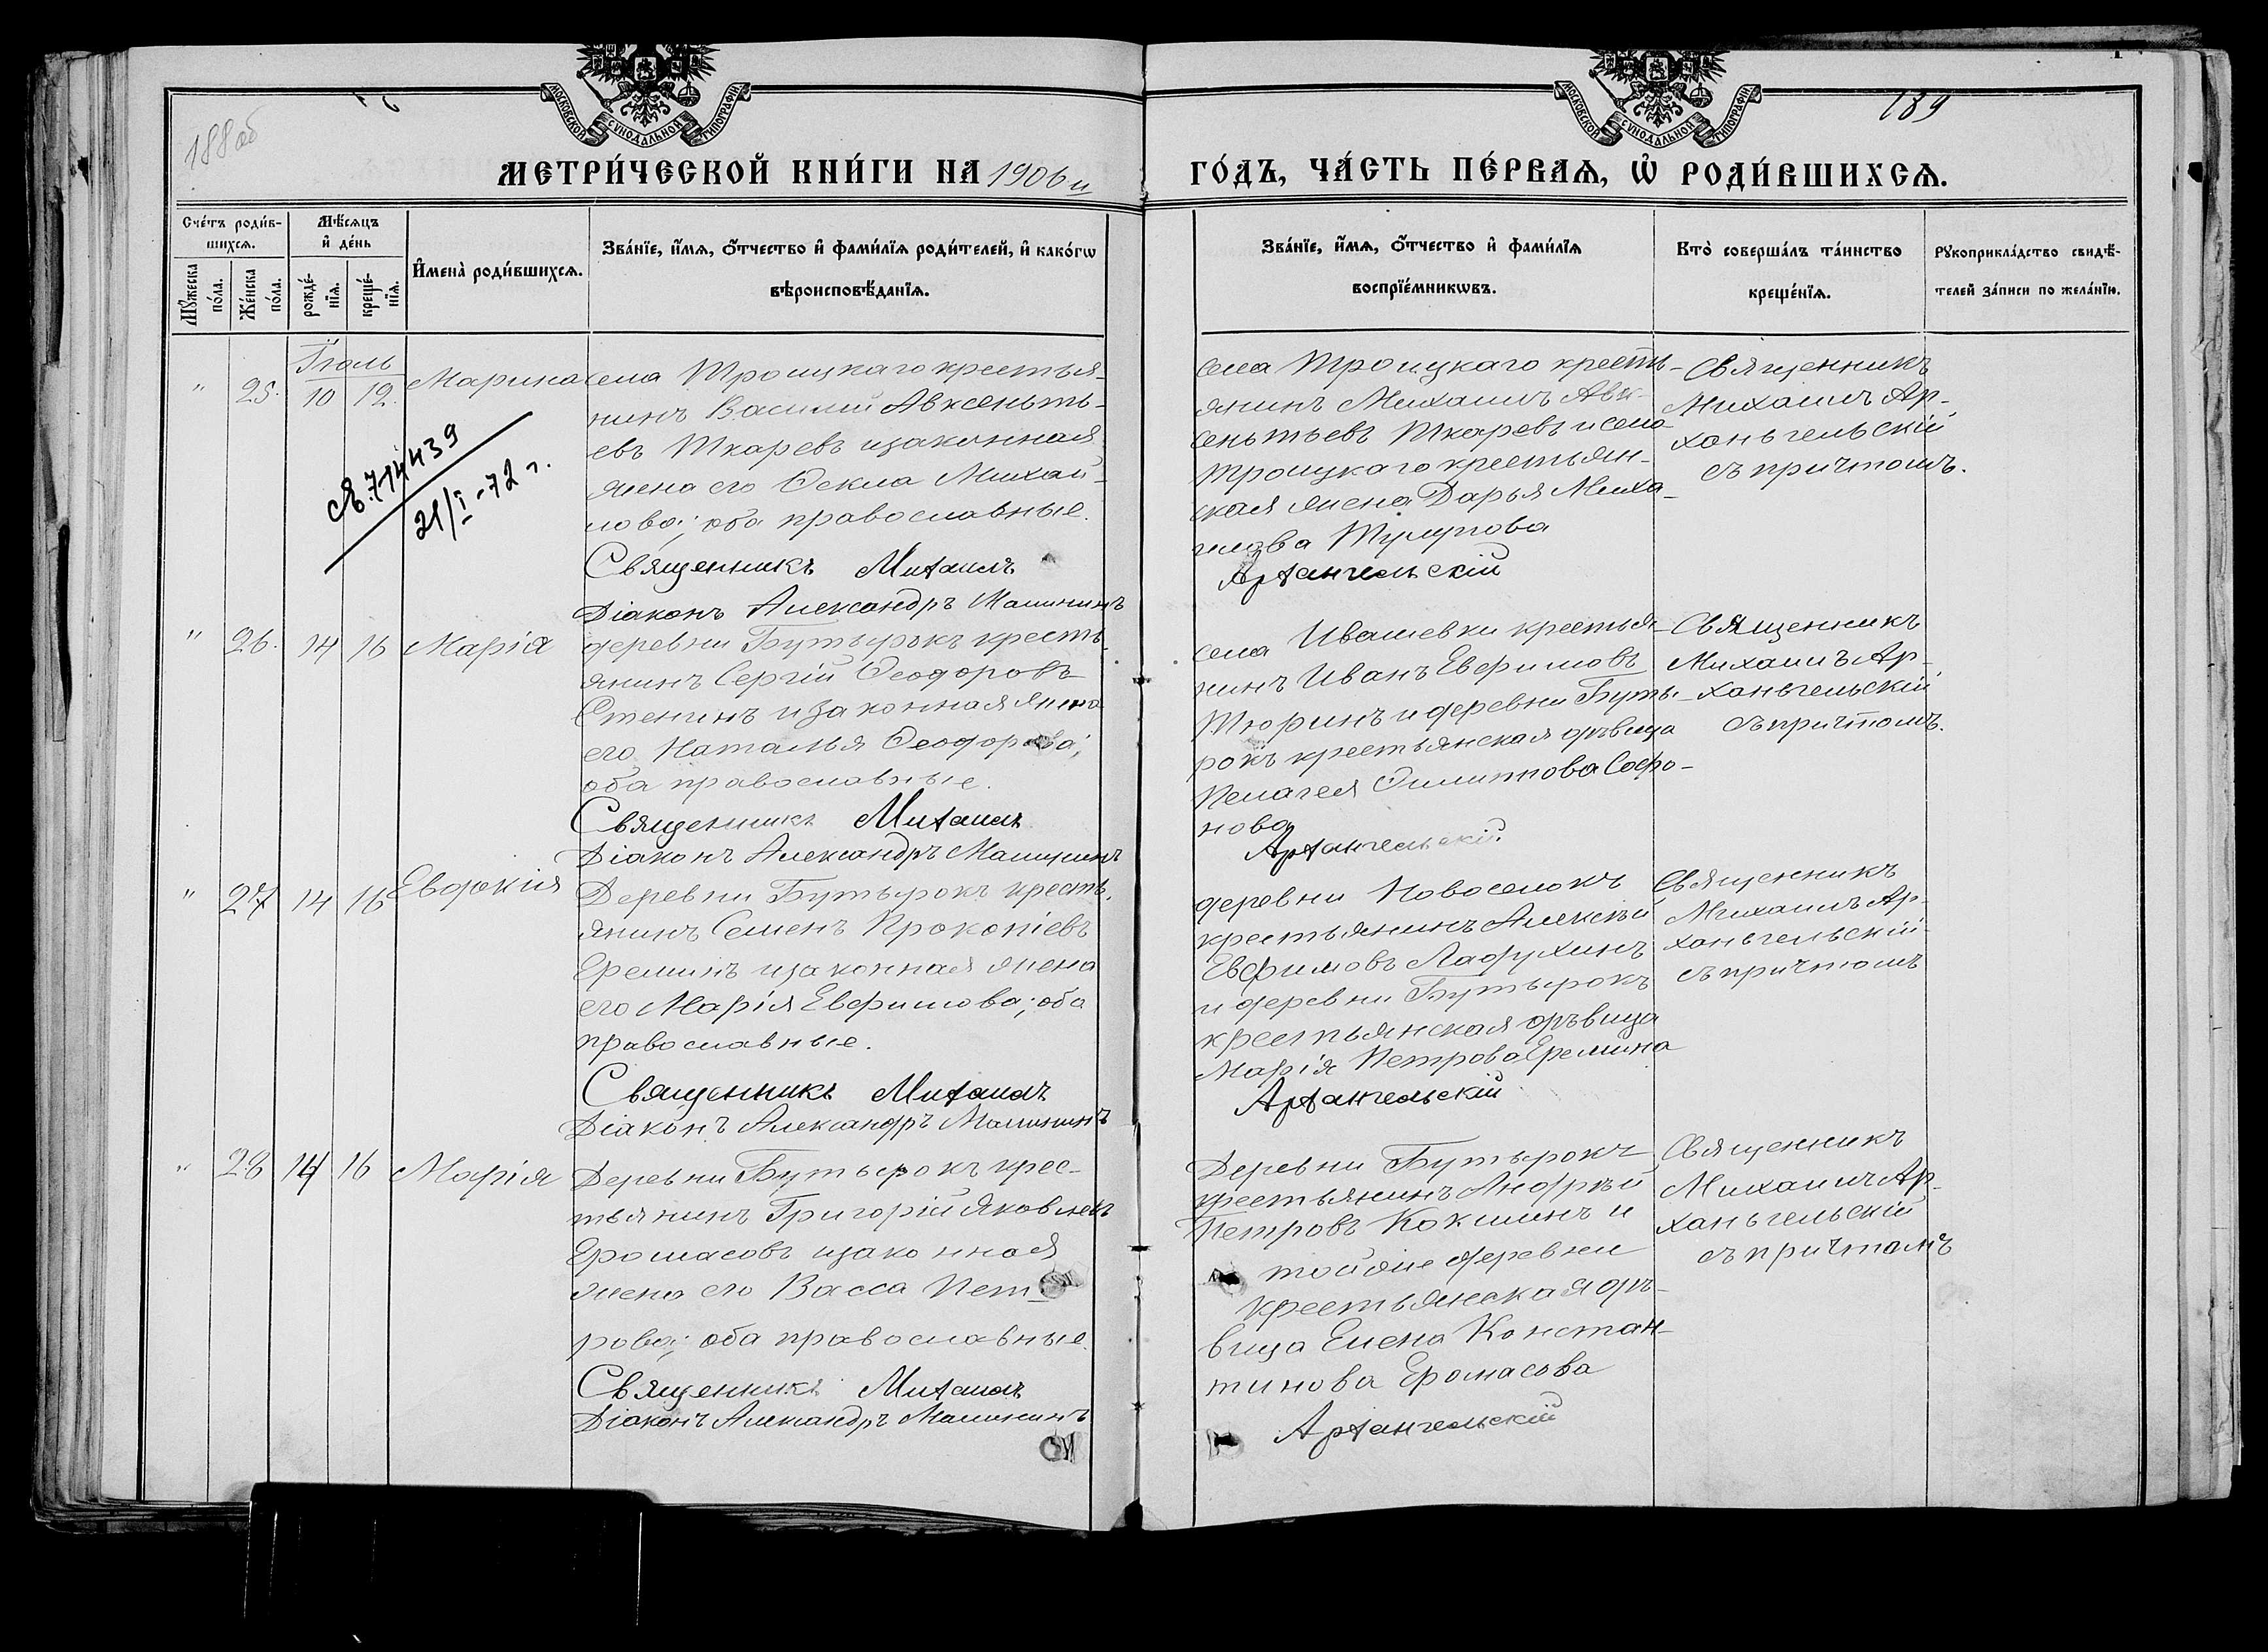 188 об
189
МОСКОВСКОЙ СѴНОДАЛЬНОЙ ТИПОГРАФІИ
МОСКОВСКОЙ СѴНОДАЛЬНОЙ ТИПОГРАФІИ
МЕТРИ́ЧЕСКОЙ КНИ́ГИ НА 1906 й
ГО́ДЪ, ЧА́СТЬ ПЕ́РВАѦ, Ѡ҆ РОДИ́ВШИХСѦ.
Сче́тъ роди́в-
шихсѧ.
Мꙋ́жеска по́ла.
Же́нска по́ла.
Мѣ́сѧцъ
и҆ де́нь
рожде́-нїѧ.
креще́-нїѧ.
И҆мена̀ роди́вшихсѧ.
Зва́нїе, и҆́мѧ, ѻ҆́тчество и҆ фами́лїѧ роди́телей, и҆ како́гѡ
вѣроисповѣ́данїѧ.
Зва́нїе, и҆́мѧ, ѻ҆́тчество и҆ фами́лїѧ
воспрїе́мникѡвъ.
Кто̀ соверша́лъ та́инство
креще́нїѧ.
Рꙋкоприкла́дство свидѣ́-
телей за́писи по жела́нїю.
Іюль
" 25. 10 12. Марина
села Троицкаго крестья-
нинъ Василий Авксенть-
евъ Шкаревъ и законная
жена его Ѳекла Михай-
лова; оба православные.
Священникъ Михаилъ
Діаконъ Александръ Малининъ
21/I-72 г.
села Троицкаго кресть-
янинъ Михаилъ Авк-
сентьевъ Шкаревъ и села
Троицкаго крестьян-
ская жена Дарья Миха-
илова
Архангельскій
Священникъ
Михаилъ Ар-
хангельскій
съ причтомъ.
" 26. 14 16 Марія
деревни Бутырокъ кресть-
янинъ Сергій Ѳеодоровъ
Стенинъ и законная жена
его Наталья Ѳеодорова;
оба православные.
Священникъ Михаилъ
Діаконъ Александръ Малининъ
села Ивашевки крестья-
нинъ Иванъ Евфимовъ
Тюринъ и деревни Буты-
рокъ крестьянская дѣвица
Пелагея Филиппова Софо-
нова
Архангельскій
Священникъ
Михаилъ Ар-
хангельскій
съ причтомъ.
" 27 14 16 Евдокія
Деревни Бутырокъ кресть-
янинъ Семенъ Прокопіевъ
Ереминъ и законная жена
его Марія Евфимова; оба
православные.
Священникъ Михаилъ
Діаконъ Александръ Малининъ
деревни Новоселокъ
крестьянинъ Алексѣй
Евфимовъ Ладухинъ
и деревни Бутырокъ
крестьянская дѣвица
Марія Петрова Еремина
Архангельскій
Священникъ
Михаилъ Ар-
хангельскій
съ причтомъ
" 28 14 16 Марія
Деревни Бутырокъ крес-
тьянинъ Григорій Яковлевъ
Еромасовъ и законная
жена его Васса Пет-
рова; оба православные.
Священникъ Михаилъ
Діаконъ Александръ Малининъ
Деревни Бутырокъ
крестьянинъ Андрѣй
Петровъ Кокшинъ и
той же деревни
крестьянская дѣ-
вица Елена Констан-
тинова Еромасова
Архангельскій
Священникъ
Михаилъ Ар-
хангельскій
съ причтомъ